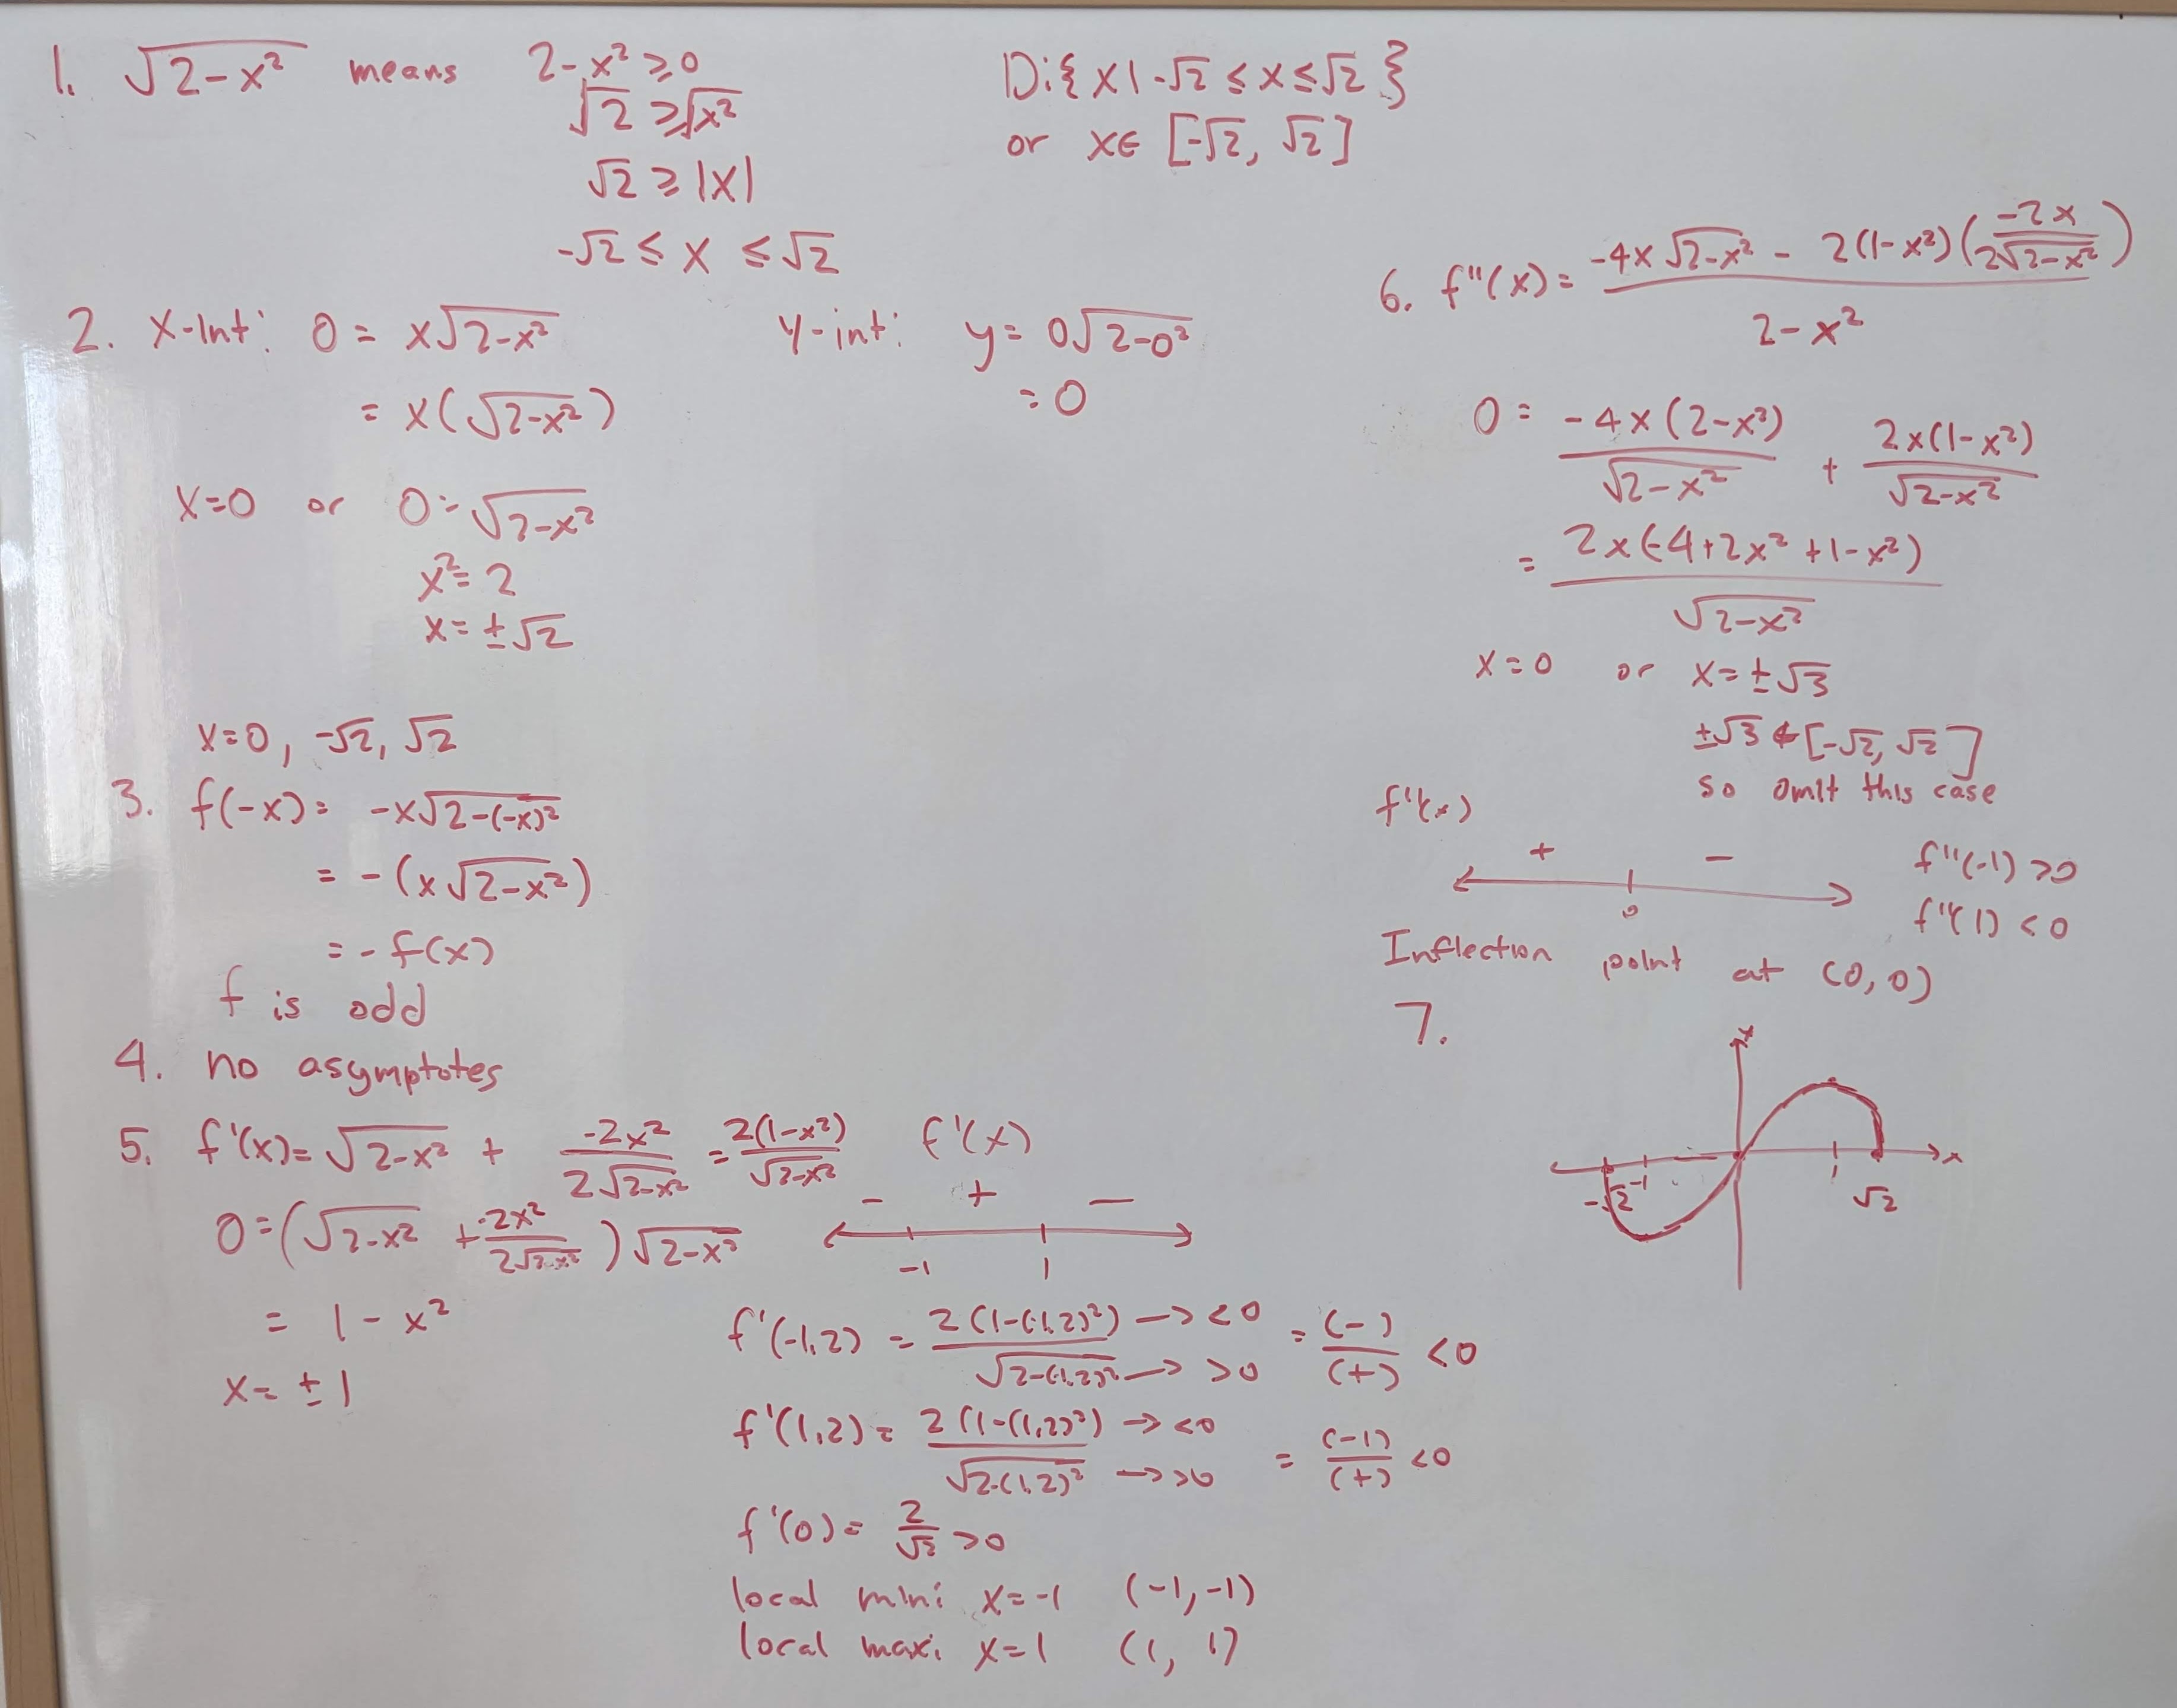 1. √(2-x²) means 2-x² ≥ 0
√2 ≥ √x²
√2 ≥ |x|
-√2 ≤ x ≤ √2
D: { x | -√2 ≤ x ≤ √2 }
or x∈ [-√2, √2]
2. x-int: 0 = x√(2-x²)
= x(√(2-x²))
x=0 or 0=√(2-x²)
x²=2
x=±√2
x=0, -√2, √2
y-int: y= 0√(2-0²)
= 0
3. f(-x)= -x√(2-(-x)²)
= -(x√(2-x²))
= -f(x)
f is odd
4. no asymptotes
5. f'(x)= √(2-x²) + (-2x²)/(2√(2-x²)) = 2(1-x²)/√(2-x²)
0=(√(2-x²) + (-2x²)/(2√(2-x²)))√(2-x²)
= 1-x²
x= ±1
f'(x)
- + -
-1 1
f'(-1.2) = 2(1-(-1.2)²)/√(2-(-1.2)²) → <0 → >0 = (-)/(+) <0
f'(1.2) = 2(1-(1.2)²)/√(2-(1.2)²) → <0 → >0 = (-1)/(+) <0
f'(0)= 2/√2 >0
local min: x=-1 (-1,-1)
local max: x=1 (1, 1)
6. f''(x)= (-4x√(2-x²) - 2(1-x²)(-2x/(2√(2-x²))))/(2-x²)
0= -4x(2-x²)/√(2-x²) + 2x(1-x²)/√(2-x²)
= 2x(-4+2x²+1-x²)/√(2-x²)
x=0 or x=±√3
±√3 ∉ [-√2, √2]
so omit this case
f''(x)
+ -
0
f''(-1) >0
f''(1) <0
Inflection point at (0,0)
7.
y
x
-√2 -1 1 √2